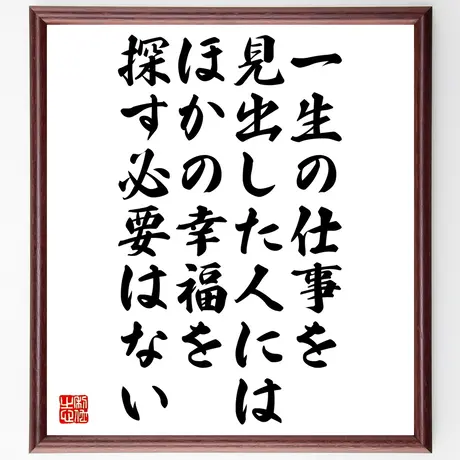 一生の仕事を
見出した人には
ほかの幸福を
探す必要はない